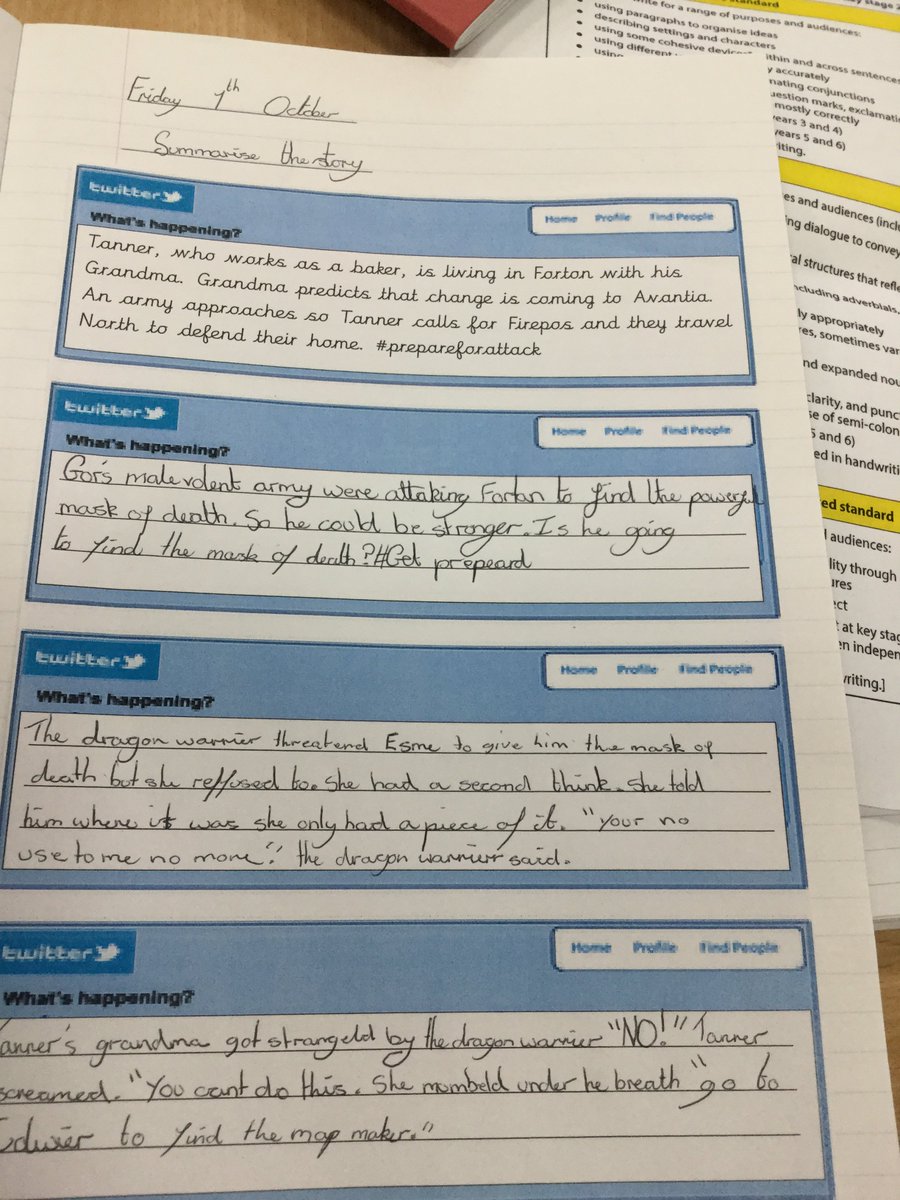 Friday 1th October
Summarise the story
twitter
Home Profile Find People
What's happening?
Tanner, who works as a baker, is living in Forton with his
Grandma. Grandma predicts that change is coming to Avantia.
An army approaches so Tanner calls for Firepos and they travel
North to defend their home. #prepareforattack
twitter
Home Profile Find People
What's happening?
Gor's malevolent army were attaking Fortan to find the powerful
mask of death. So he could be stronger. Is he going
to find the mask of death? #Get prepeard
twitter
Home Profile Find People
What's happening?
The dragon warrier threatend Esme to give him the mask of
death but she reffused to. She had a second think. She told
him where it was she only had a piece of it. "Your no
use to me no more." the dragon warrier said.
twitter
Home Profile Find People
What's happening?
anner's grandma got strangeld by the dragon warrier "NO!" Tanner
screamed. "You cant do this. She mumbeld under he breath "go to
to find the map maker."
stage 2
standard
write for a range of purposes and audiences:
using paragraphs to organise ideas
describing settings and characters
using some cohesive devices within and across sentences
using different
using
accurately
nating conjunctions
uestion marks, exclamati
mostly correctly
years 3 and 4)
years 5 and 6)
iting.
es and audiences (inclu
ing dialogue to convey
al structures that refle
ncluding adverbials,
ly appropriately
res, sometimes var
nd expanded nou
clarity, and punc
se of semi-colon
5 and 6)
ed in handwriti
ed standard
audiences:
lity through
ures
ect
at key stag
en indepen
writing.]